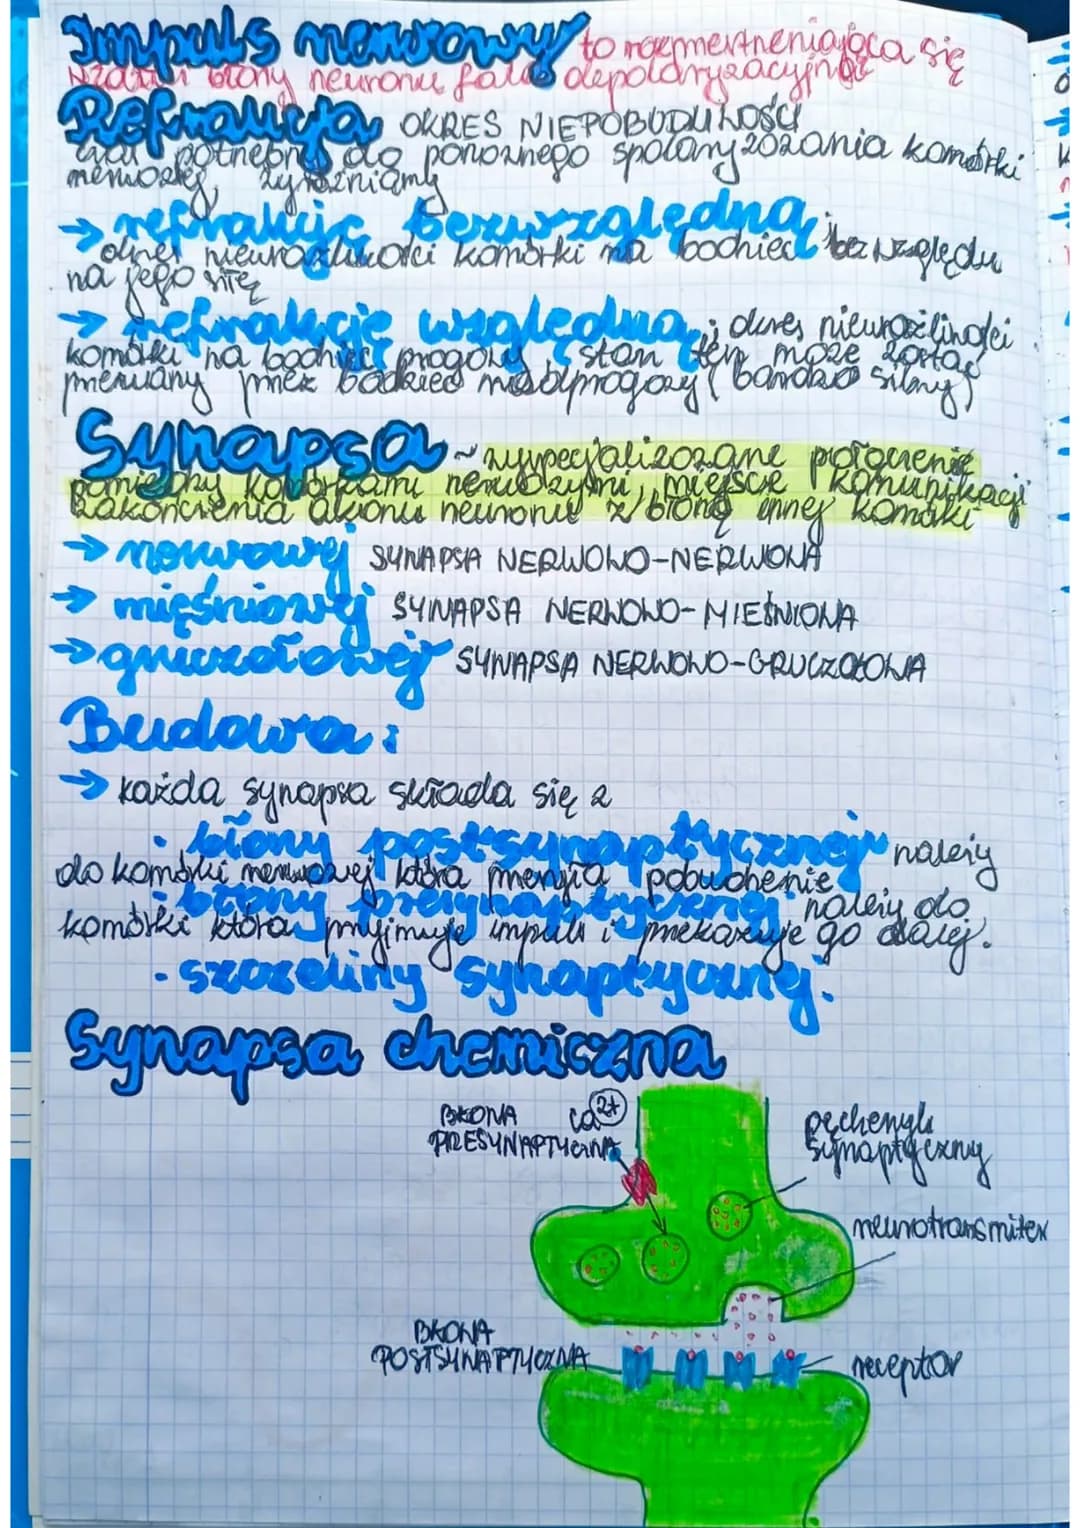 Impuls nerwowy to rozprzestrzeniająca się
wzdłuż błony neuronu fala depolaryzacyjna
Refrakcja OKRES NIEPOBUDLIWOŚCI
czas potrzebny do ponownego spolaryzowania komórki
nerwowej, wyróżniamy
→ refrakcję bezwzględną:
okres niewrażliwości komórki na bodziec bez względu
na jego siłę
→ refrakcję względną; okres niewrażliwości
komórki na bodziec progowy, stan ten może zostać
przerwany przez bodziec nadprogowy (bardzo silny)
Synapsa ~ wyspecjalizowane połączenie
pomiędzy komórkami nerwowymi, miejsce komunikacji
zakończenia aksonu neuronu z błoną innej komórki
→ nerwowej SYNAPSA NERWOWO-NERWOWA
→ mięśniowej SYNAPSA NERWOWO-MIEŚNIOWA
→ gruczołowej SYNAPSA NERWOWO-GRUCZOŁOWA
Budowa:
→ każda synapsa składa się z
· błony postsynaptycznej należy
do komórki nerwowej która przesyła pobudzenie
· błony presynaptycznej należy do
komórki która przyjmuje impuls i przekazuje go dalej.
· szczeliny synaptycznej.
Synapsa chemiczna
BŁONA
PRESYNAPTYCZNA
Ca 2+
pęcherzyk
synaptyczny
neurotransmiter
BŁONA
POSTSYNAPTYCZNA
receptor